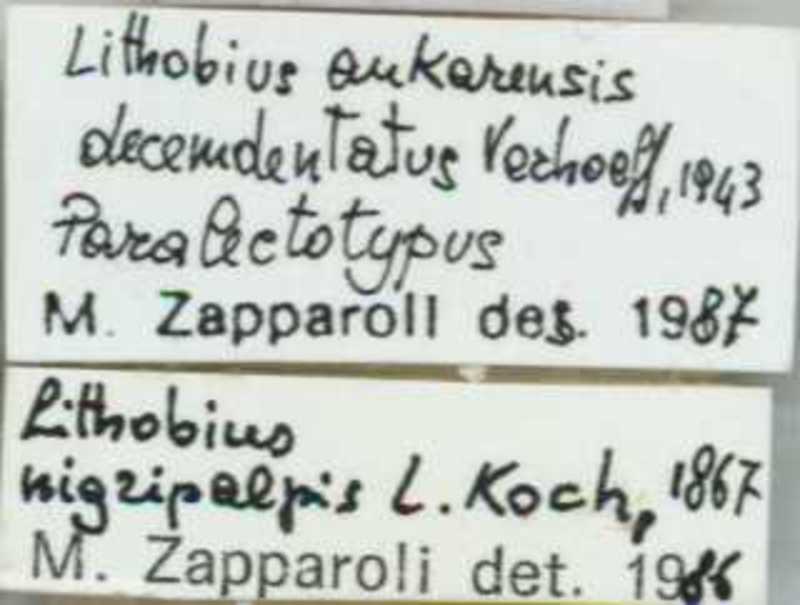 Lithobius ankarensis
decemdentatus Verhoeff, 1943
Paralectotypus
M. Zapparoli des. 1987
Lithobius
nigripalpis L. Koch, 1867
M. Zapparoli det. 1986